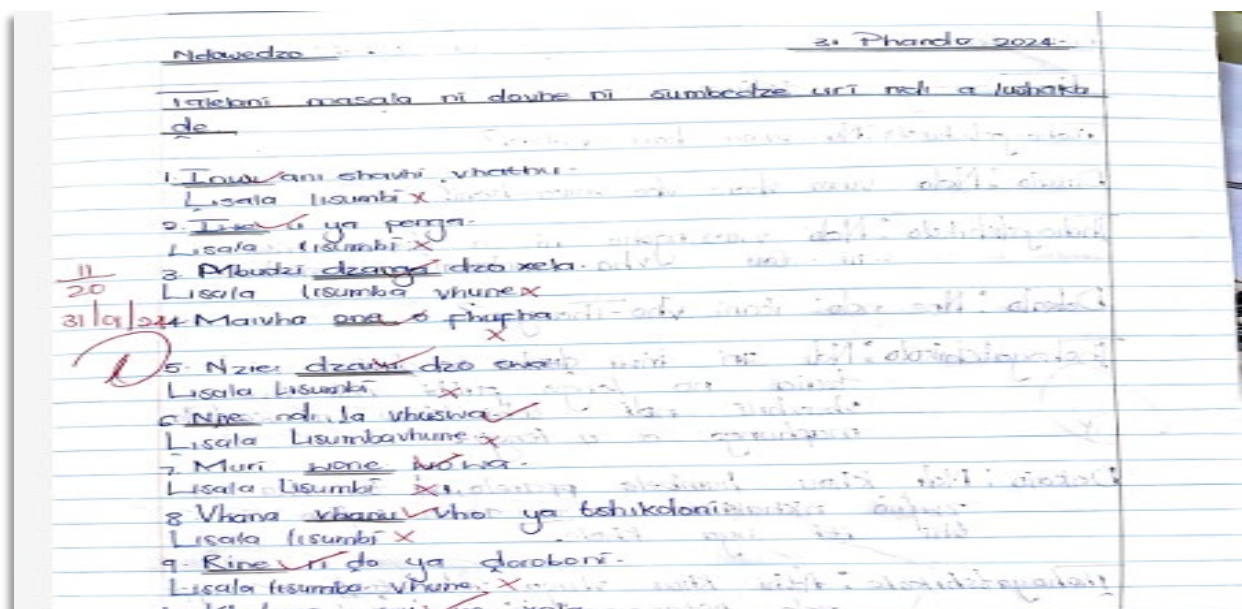 Ndowedzo 31 Phando 2024
Talelani masala ni dovhe ni sumbedze uri ndi a lushaka
de
1. ani shavhi vhathu.
Lisala lisumbi x
2. ya penga.
Lisala lisumbi x
3. Mbudzi dzanga dzo xela.
Lisala lisumba vhune x
11/20
31/9/24
4 Maivha ene o fhufha
x
5. Nzie dzawe dzo
Lisala Lisumbi x
6 Nne ndi la vhuswa
Lisala Lisumbavhune x
7. Muri wone wo wa.
Lisala Lisumbi x
8 Vhana vhanu vho ya tshikoloni
Lisala lisumbi x
9. Rine ri do ya doroboni.
Lisala lisumba vhune x